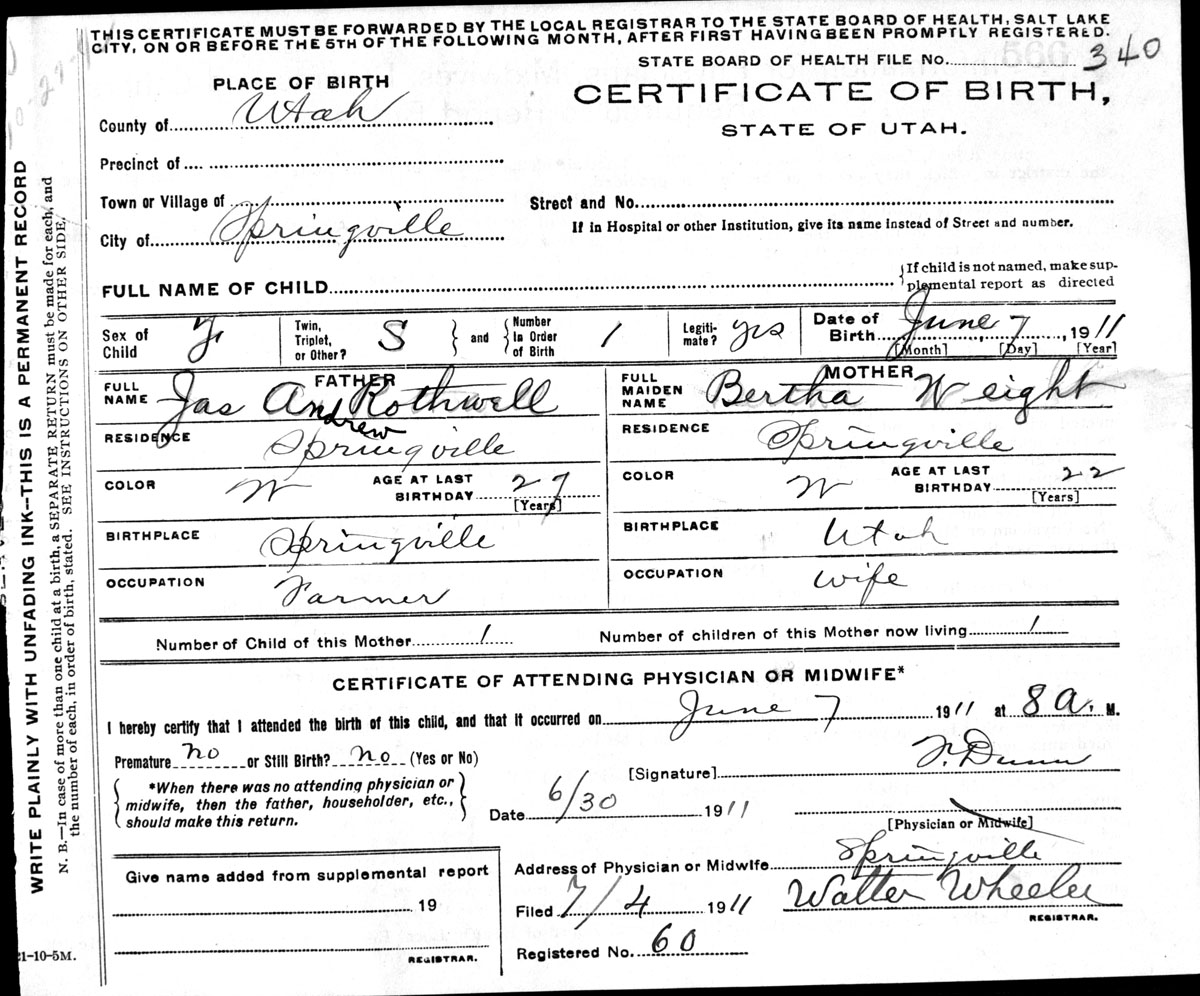 THIS CERTIFICATE MUST BE FORWARDED BY THE LOCAL REGISTRAR TO THE STATE BOARD OF HEALTH, SALT LAKE
CITY, ON OR BEFORE THE 5TH OF THE FOLLOWING MONTH, AFTER FIRST HAVING BEEN PROMPTLY REGISTERED.
STATE BOARD OF HEALTH FILE No. 340
PLACE OF BIRTH
CERTIFICATE OF BIRTH,
STATE OF UTAH.
County of Utah
Precinct of
Town or Village of
Street and No.
City of Springville
If in Hospital or other Institution, give its name instead of Street and number.
FULL NAME OF CHILD
If child is not named, make sup-
plemental report as directed
Sex of Child
Twin, Triplet, or Other? S and Number in Order of Birth 1
Legiti- mate? yes
Date of Birth June 7, 1911
[Month] [Day] [Year]
FATHER
FULL NAME Jas Andrew Rothwell
RESIDENCE Springville
COLOR W AGE AT LAST BIRTHDAY 27
[Years]
BIRTHPLACE Springville
OCCUPATION Farmer
MOTHER
FULL MAIDEN NAME Bertha Weight
RESIDENCE Springville
COLOR W AGE AT LAST BIRTHDAY 22
[Years]
BIRTHPLACE Utah
OCCUPATION wife
Number of Child of this Mother 1 Number of children of this Mother now living 1
CERTIFICATE OF ATTENDING PHYSICIAN OR MIDWIFE*
I hereby certify that I attended the birth of this child, and that it occurred on June 7 1911 at 8 a. M.
Premature no or Still Birth? no (Yes or No)
*When there was no attending physician or
midwife, then the father, householder, etc.,
should make this return.
[Signature] F. Dunn
Date 6/30 1911
[Physician or Midwife]
Address of Physician or Midwife Springville
Filed 7/4 1911 Walter Wheeler
REGISTRAR.
Registered No. 60
Give name added from supplemental report
19
REGISTRAR.
21-10-5M.
WRITE PLAINLY WITH UNFADING INK--THIS IS A PERMANENT RECORD
N. B.—In case of more than one child at a birth, a SEPARATE RETURN must be made for each, and
the number of each, in order of birth, stated. SEE INSTRUCTIONS ON OTHER SIDE.